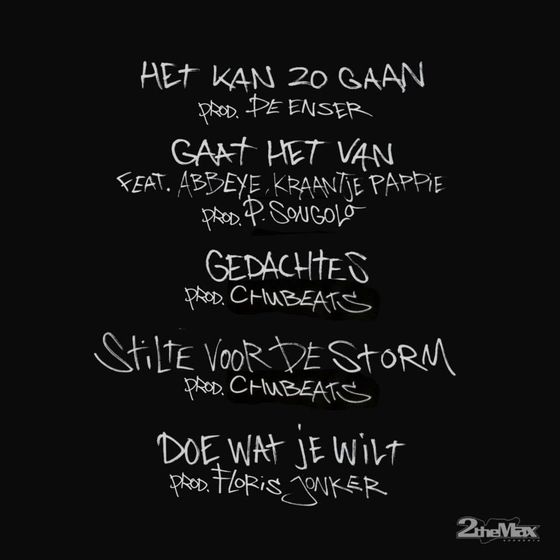 HET KAN ZO GAAN
PROD. DE ENSER
GAAT HET VAN
FEAT. ABBEYE, KRAANTJE PAPPIE
PROD. P. SONGOLO
GEDACHTES
PROD. CHUBEATS
STILTE VOOR DE STORM
PROD. CHUBEATS
DOE WAT JE WILT
PROD. FLORIS JONKER
2theMax